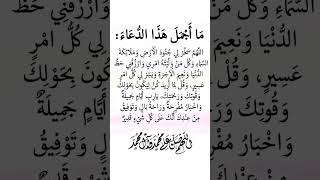 مَا أَجْمَلَ هَذَا الدُّعَاءَ:
اللَّهُمَّ سَخِّرْ لِي جُنُودَ الْأَرْضِ وَمَلَائِكَةَ
السَّمَاءِ وَكُلَّ مَنْ وَلَّيْتَهُ أَمْرِي وَارْزُقْنِي حَظَّ
الدُّنْيَا وَنَعِيمَ الْآخِرَةِ وَيَسِّرْ لِي كُلَّ أَمْرٍ
عَسِيرٍ، وَقُلْ لِمَا أُرِيدُ كُنْ لِيَكُونَ بِحَوْلِكَ
وَقُوَّتِكَ وَرَحْمَتِكَ. يَارَبِ أَيَّامٍ جَمِيلَةً
وَأَخْبَارٌ مُفْرِحَةٌ وَرَاحَةَ بَالٍ وَتَوْفِيقٌ
مِنْ عِنْدِكَ أَنَّكَ عَلَى كُلِّ شَيْءٍ قَدِيرٌ
اللهم صل على محمد وآل محمد